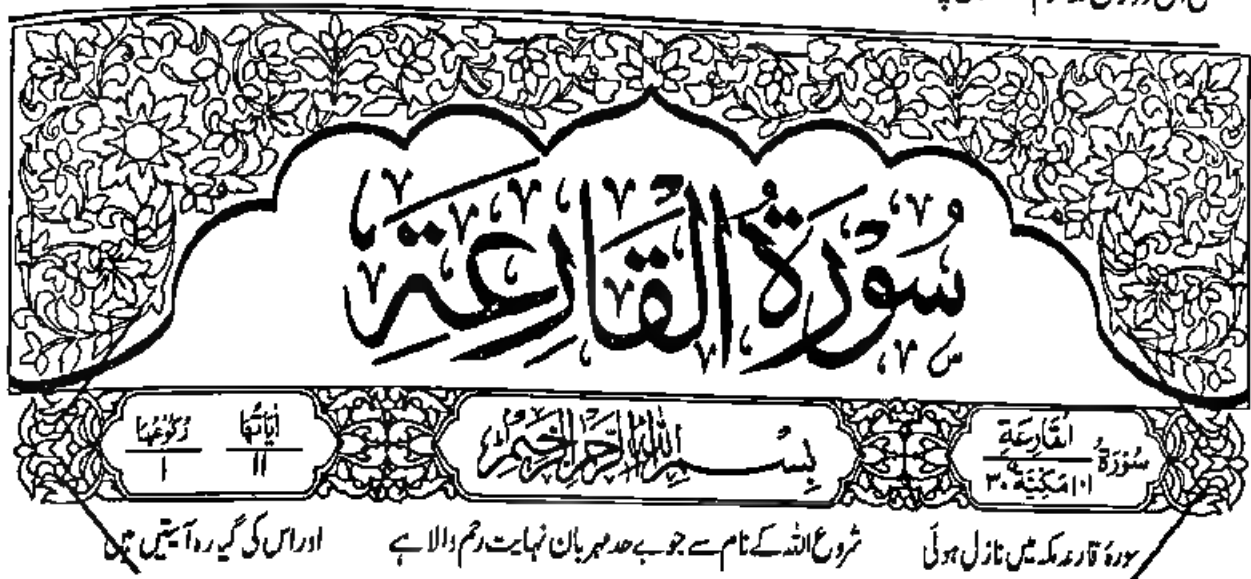 سُوْرَةُ الْقَارِعَةِ
سُوْرَةُ الْقَارِعَةِ ١٠١ مَكِّيَّةٌ ٣٠ بِسْمِ اللهِ الرَّحْمٰنِ الرَّحِيْمِ اٰيَاتُهَا ١١ رُكُوْعُهَا ١
سورۂ قارعہ مکہ میں نازل ہوئی شروع اللہ کے نام سے جو بے حد مہربان نہایت رحم والا ہے اور اس کی گیارہ آیتیں ہیں